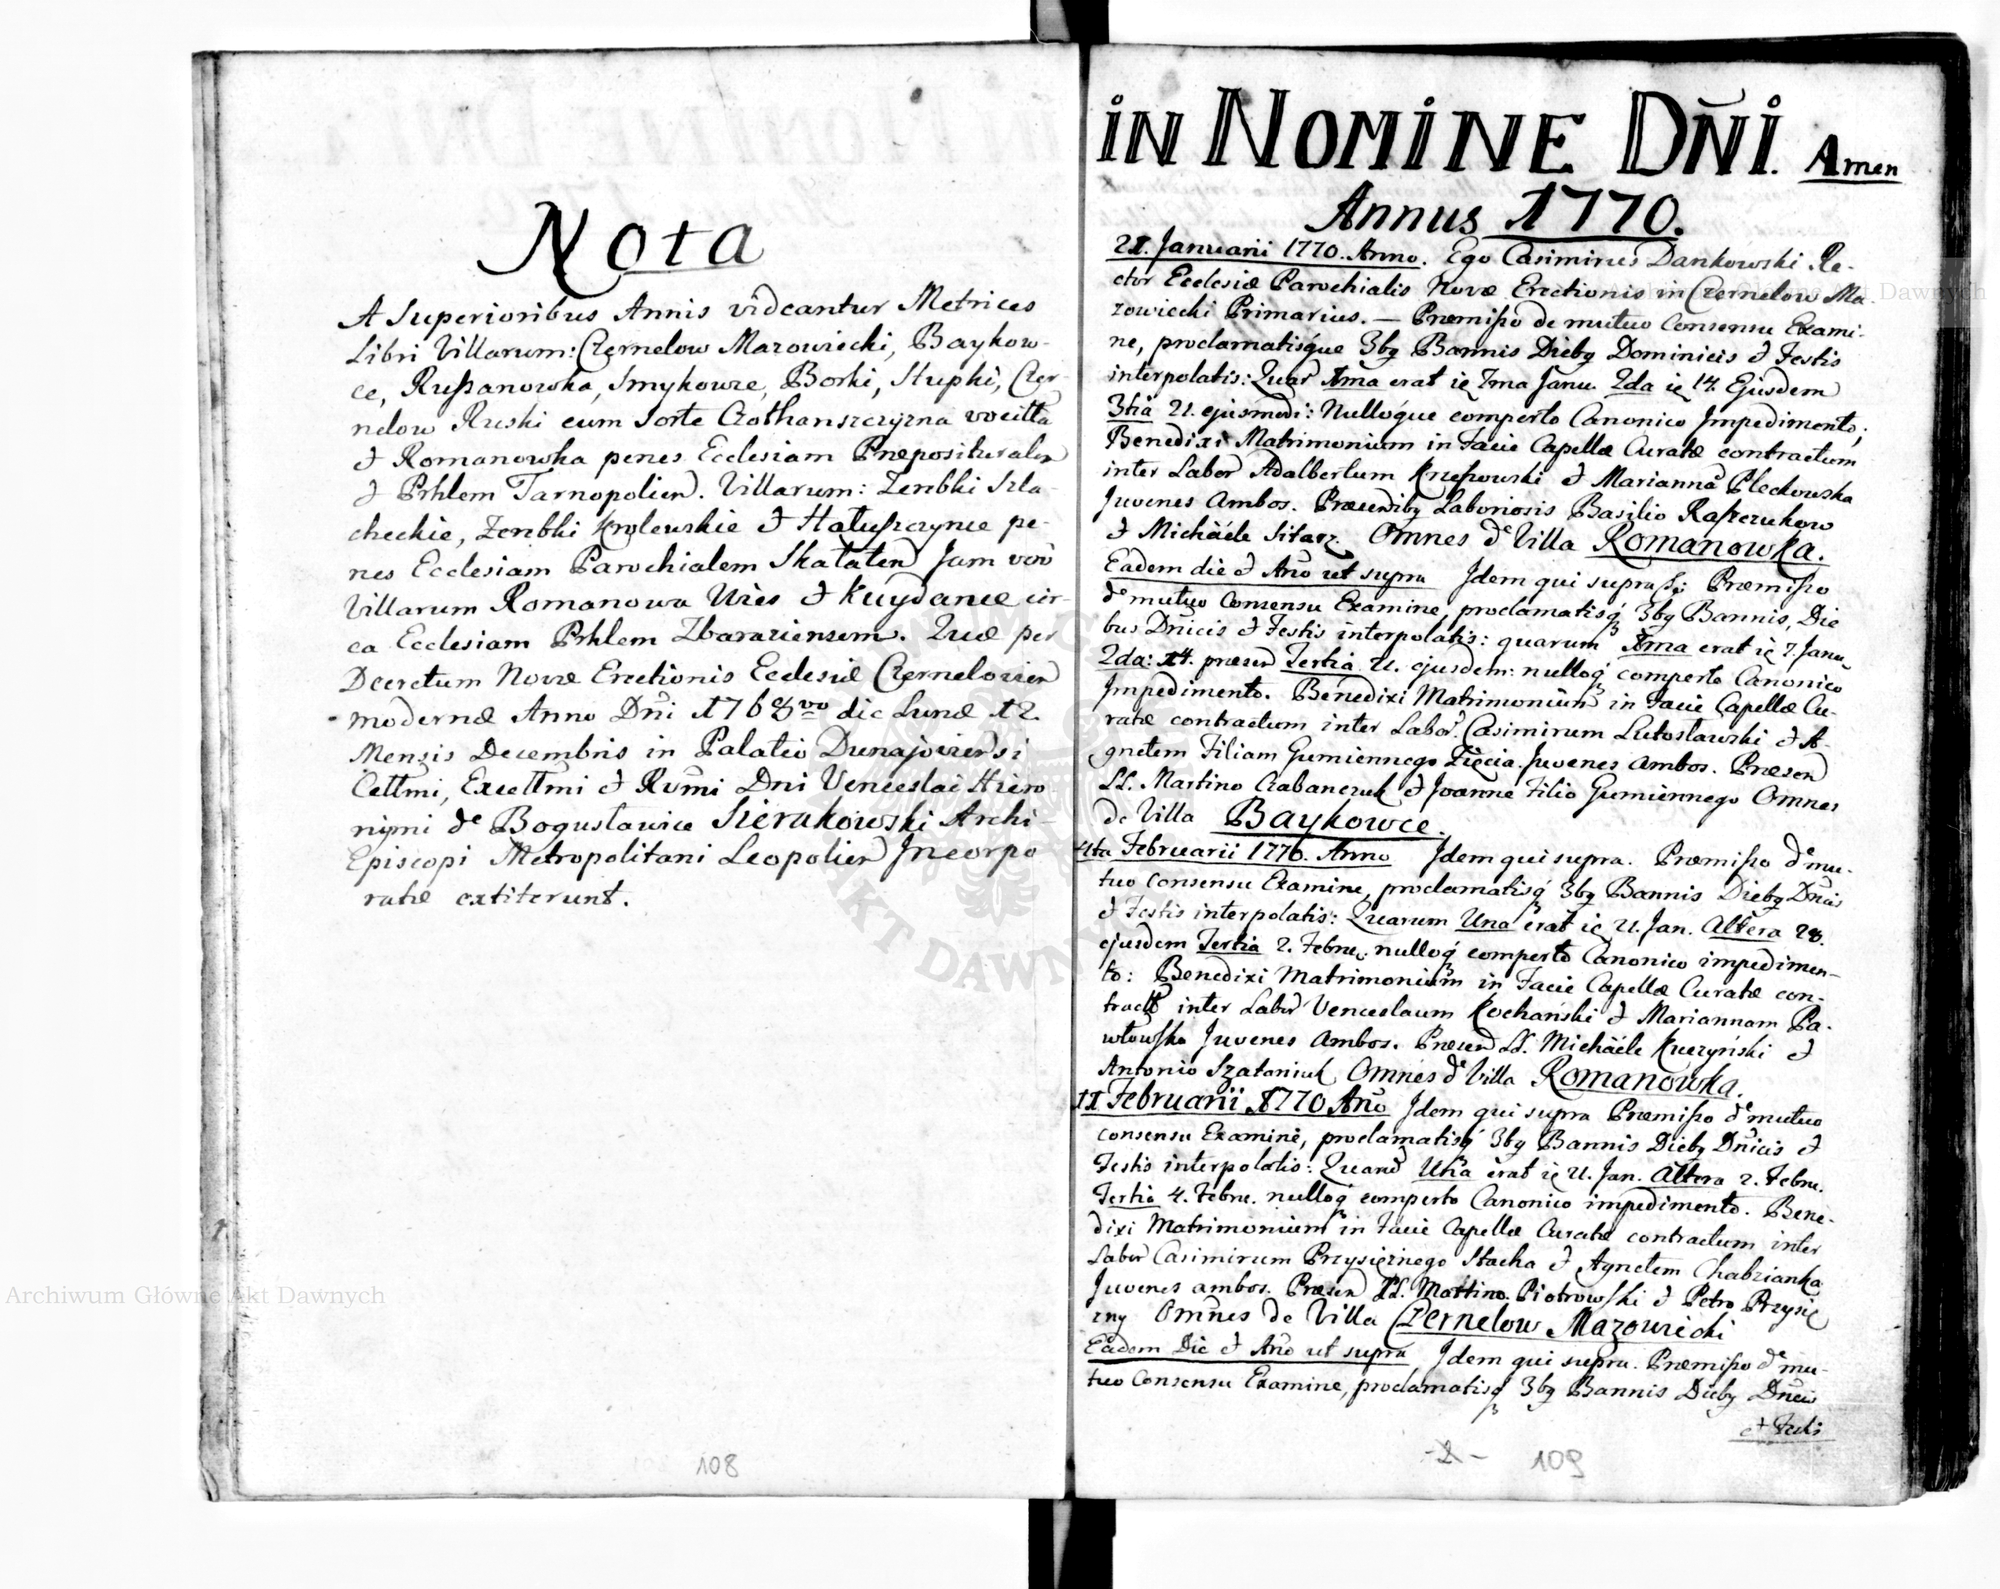 Nota
A Superioribus Annis videantur Metrices
Libri Villarum: Czernelow Mazowiecki, Baykow-
ce, Rußanowka, Smykowce, Borki, Stupki, Czer-
nelow Ruski cum Sorte Gothanszczyzna
& Romanowka penes Ecclesiam Præposituralem
& Prhlem Tarnopolien. Villarum: Zerebki Szla-
checkie, Zerebki Krolewskie & Hałuszczynce pe-
nes Ecclesiam Parochialem Skałaten Jam
Villarum Romanowa Wies & Kuydance cir-
ca Ecclesiam Prhlem Zbaraziensem. Quæ per
Decretum Novæ Erectionis Ecclesiæ Czernelovien
modernæ Anno Dñi 1768vo die Lunæ 12.
Mensis Decembris in Palatio Dunajoviensi
Celłmi, Excełłmi & Rvmi Dni Venceslai Hiero-
nÿmi de Bogusławice Sierakowski Archi-
Episcopi Metropolitani Leopolien Incorpo
ratæ extiterunt.
108
iN NOMiNE DÑi. Amen
Annus 1770.
21. Januarii 1770. Anno. Ego Casimirus Dankowski Re-
ctor Ecclesiæ Parochialis Novæ Erectionis in Czernelow Ma
zowiecki Primarius. — Præmißo de mutuo Consensu Exami-
ne, proclamatisque 3bq Bannis Diebq Dominicis & Festis
interpolatis: Quar 1ma erat ie 7ma Janu. 2da ie 14. Ejusdem
3tia 21. ejusmodi: Nulloque comperto Canonico Impedimento;
Benedixi Matrimonium in Facie Capellæ Curatæ contractum
inter Labor Adalbertum Krzeßowski & Mariannã Plechowska
Juvenes Ambos. Præsentibq Laboriosis Basilio Raszczukow
& Michäéle Sitarz. Omnes de Villa Romanowka.
Eadem die & Año ut supra Idem qui supra Præmißo
de mutuo Consensu Examine, proclamatisq 3bq Bannis, Die
bus Dñicis & Festis interpolatis: quarum 1ma erat ie 7. Janu
2da: 14. præsen Tertia 21. ejusdem: nulloq comperto Canonico
Impedimento. Benedixi Matrimoniũm in Facie Capellæ Cu-
ratæ contractum inter Labor. Casimirum Lutosławski & A-
gnetem Filiam Gumiennego Zięcia. Juvenes Ambos. Præsen
LL. Martino Grabanczuk & Joanne Filio Gumiennego Omnes
de Villa Baykowce.
4ta Februarii 1770. Anno Idem qui supra. Præmißo de mu-
tuo Consensu Examine, proclamatisq 3bq Bannis Diebq Dñicis
& Festis interpolatis: Quarum Una erat ie 21. Jan. Altera 28.
ejusdem Tertia 2. Febru. nulloq comperto Canonico impedimen-
to: Benedixi Matrimonium in Facie Capellæ Curatæ con-
tractũ inter Labor Venceslaum Kochański & Mariannam Pa-
włowska Juvenes Ambos. Præsen LL. Michäéle Kuczyński &
Antonio Szataniuk Omnes de Villa Romanowka.
11 Februarii 1770 Año Idem qui supra Præmißo de mutuo
consensu Examine, proclamatisq 3bq Bannis Diebq Dñicis &
Festis interpolatis: Quarũ Una erat ie 21. Jan. Altera 2. Febru.
Tertia 4. Febru. nulloq comperto Canonico impedimento. Bene-
dixi Matrimonium in Facie Capellæ Curatæ contractum inter
Labor Casimirum Przysięznego Stacha & Agnetem Chabzianka
Juvenes ambos. Præsen LL. Martino. Piotrowski & Petro Przysię
zny Omnes de Villa Czernelow Mazowiecki
Eadem Die & Año ut supra Idem qui supra. Præmißo de mu-
tuo Consensu Examine, proclamatisq 3bq Bannis Diebq Dñicis
et Festis
-2-
109
Archiwum Główne Akt Dawnych
Archiwum Główne Akt Dawnych